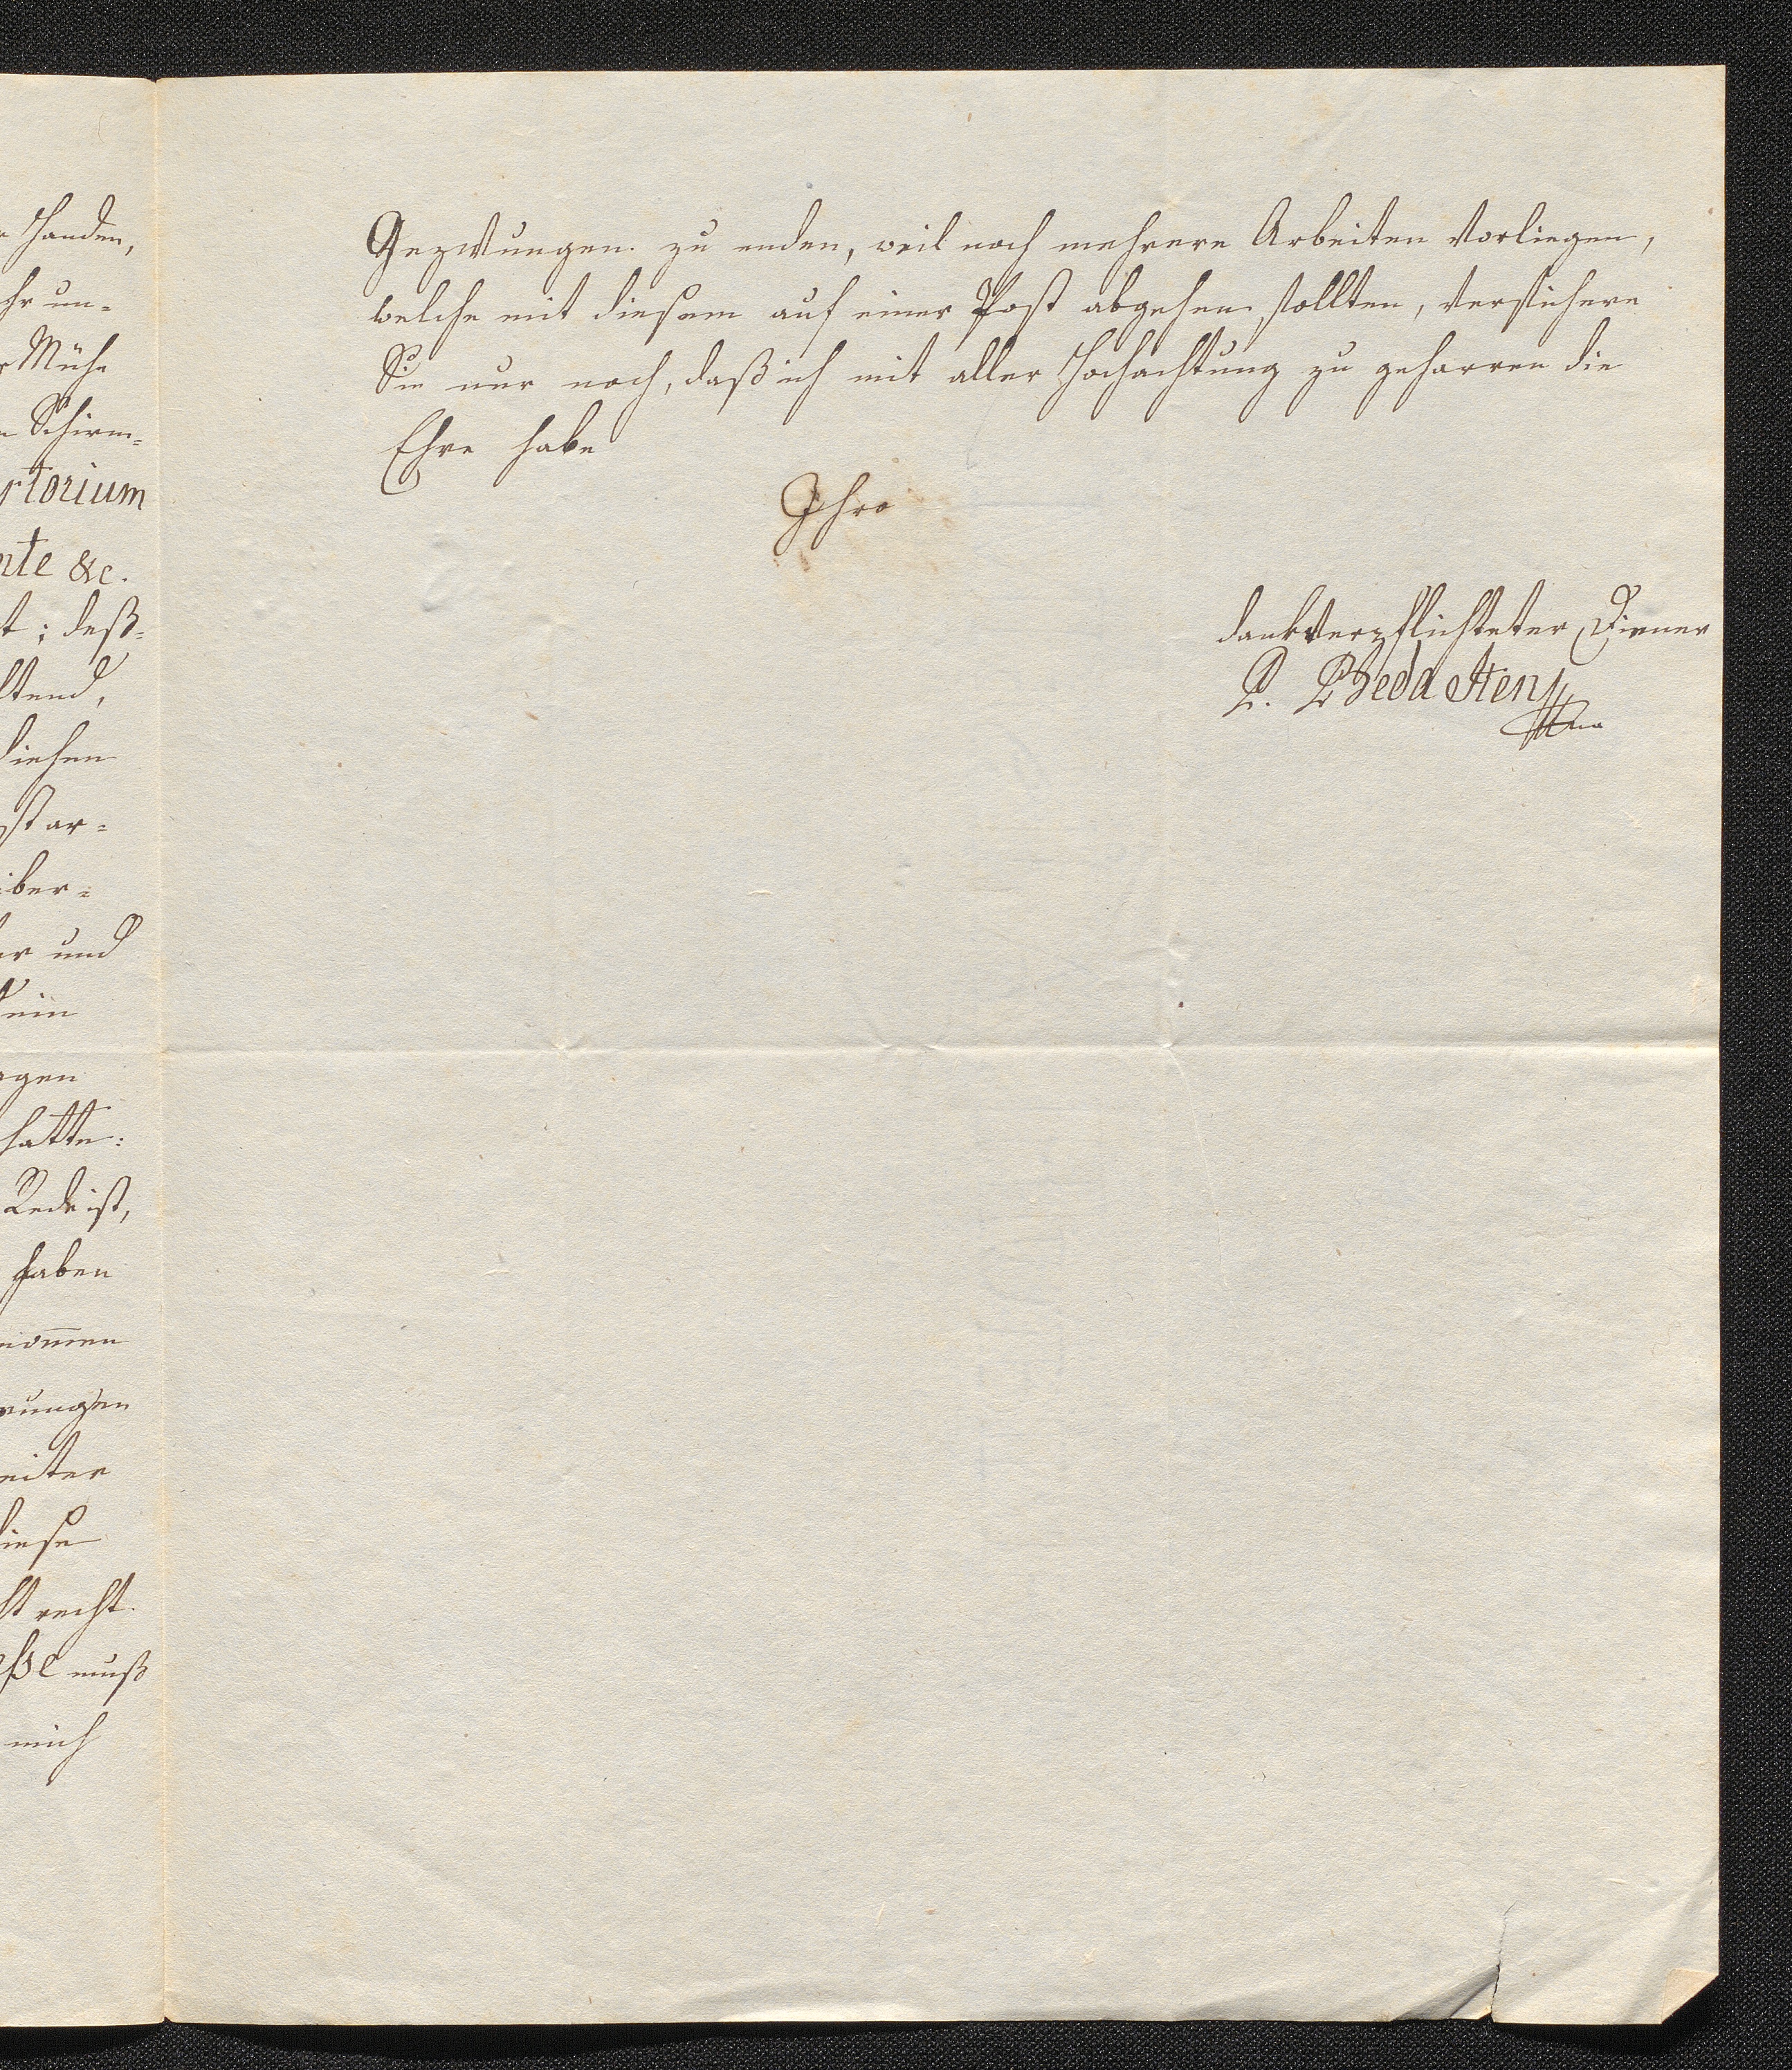 Handen,
hr un-
Mühe
Schirm-
rtorium
nte &c.
t; deß-
ltend,
diesen
st ar-
iber-
er und
ein
agen
hatte:
Rede ist,
haben
nom̅en
rungen
eiter
diese
st recht.
eßse muß
mich
Gezwungen zu enden, weil noch mehrere Arbeiten vorliegen,
welche mit diesem auf einer Post abgehen sollten, versichere
Sie nur noch, daß ich mit aller Hochachtung zu geharren die
Ehre habe
Ihro
dankverpflichteter Diener
P. Beda